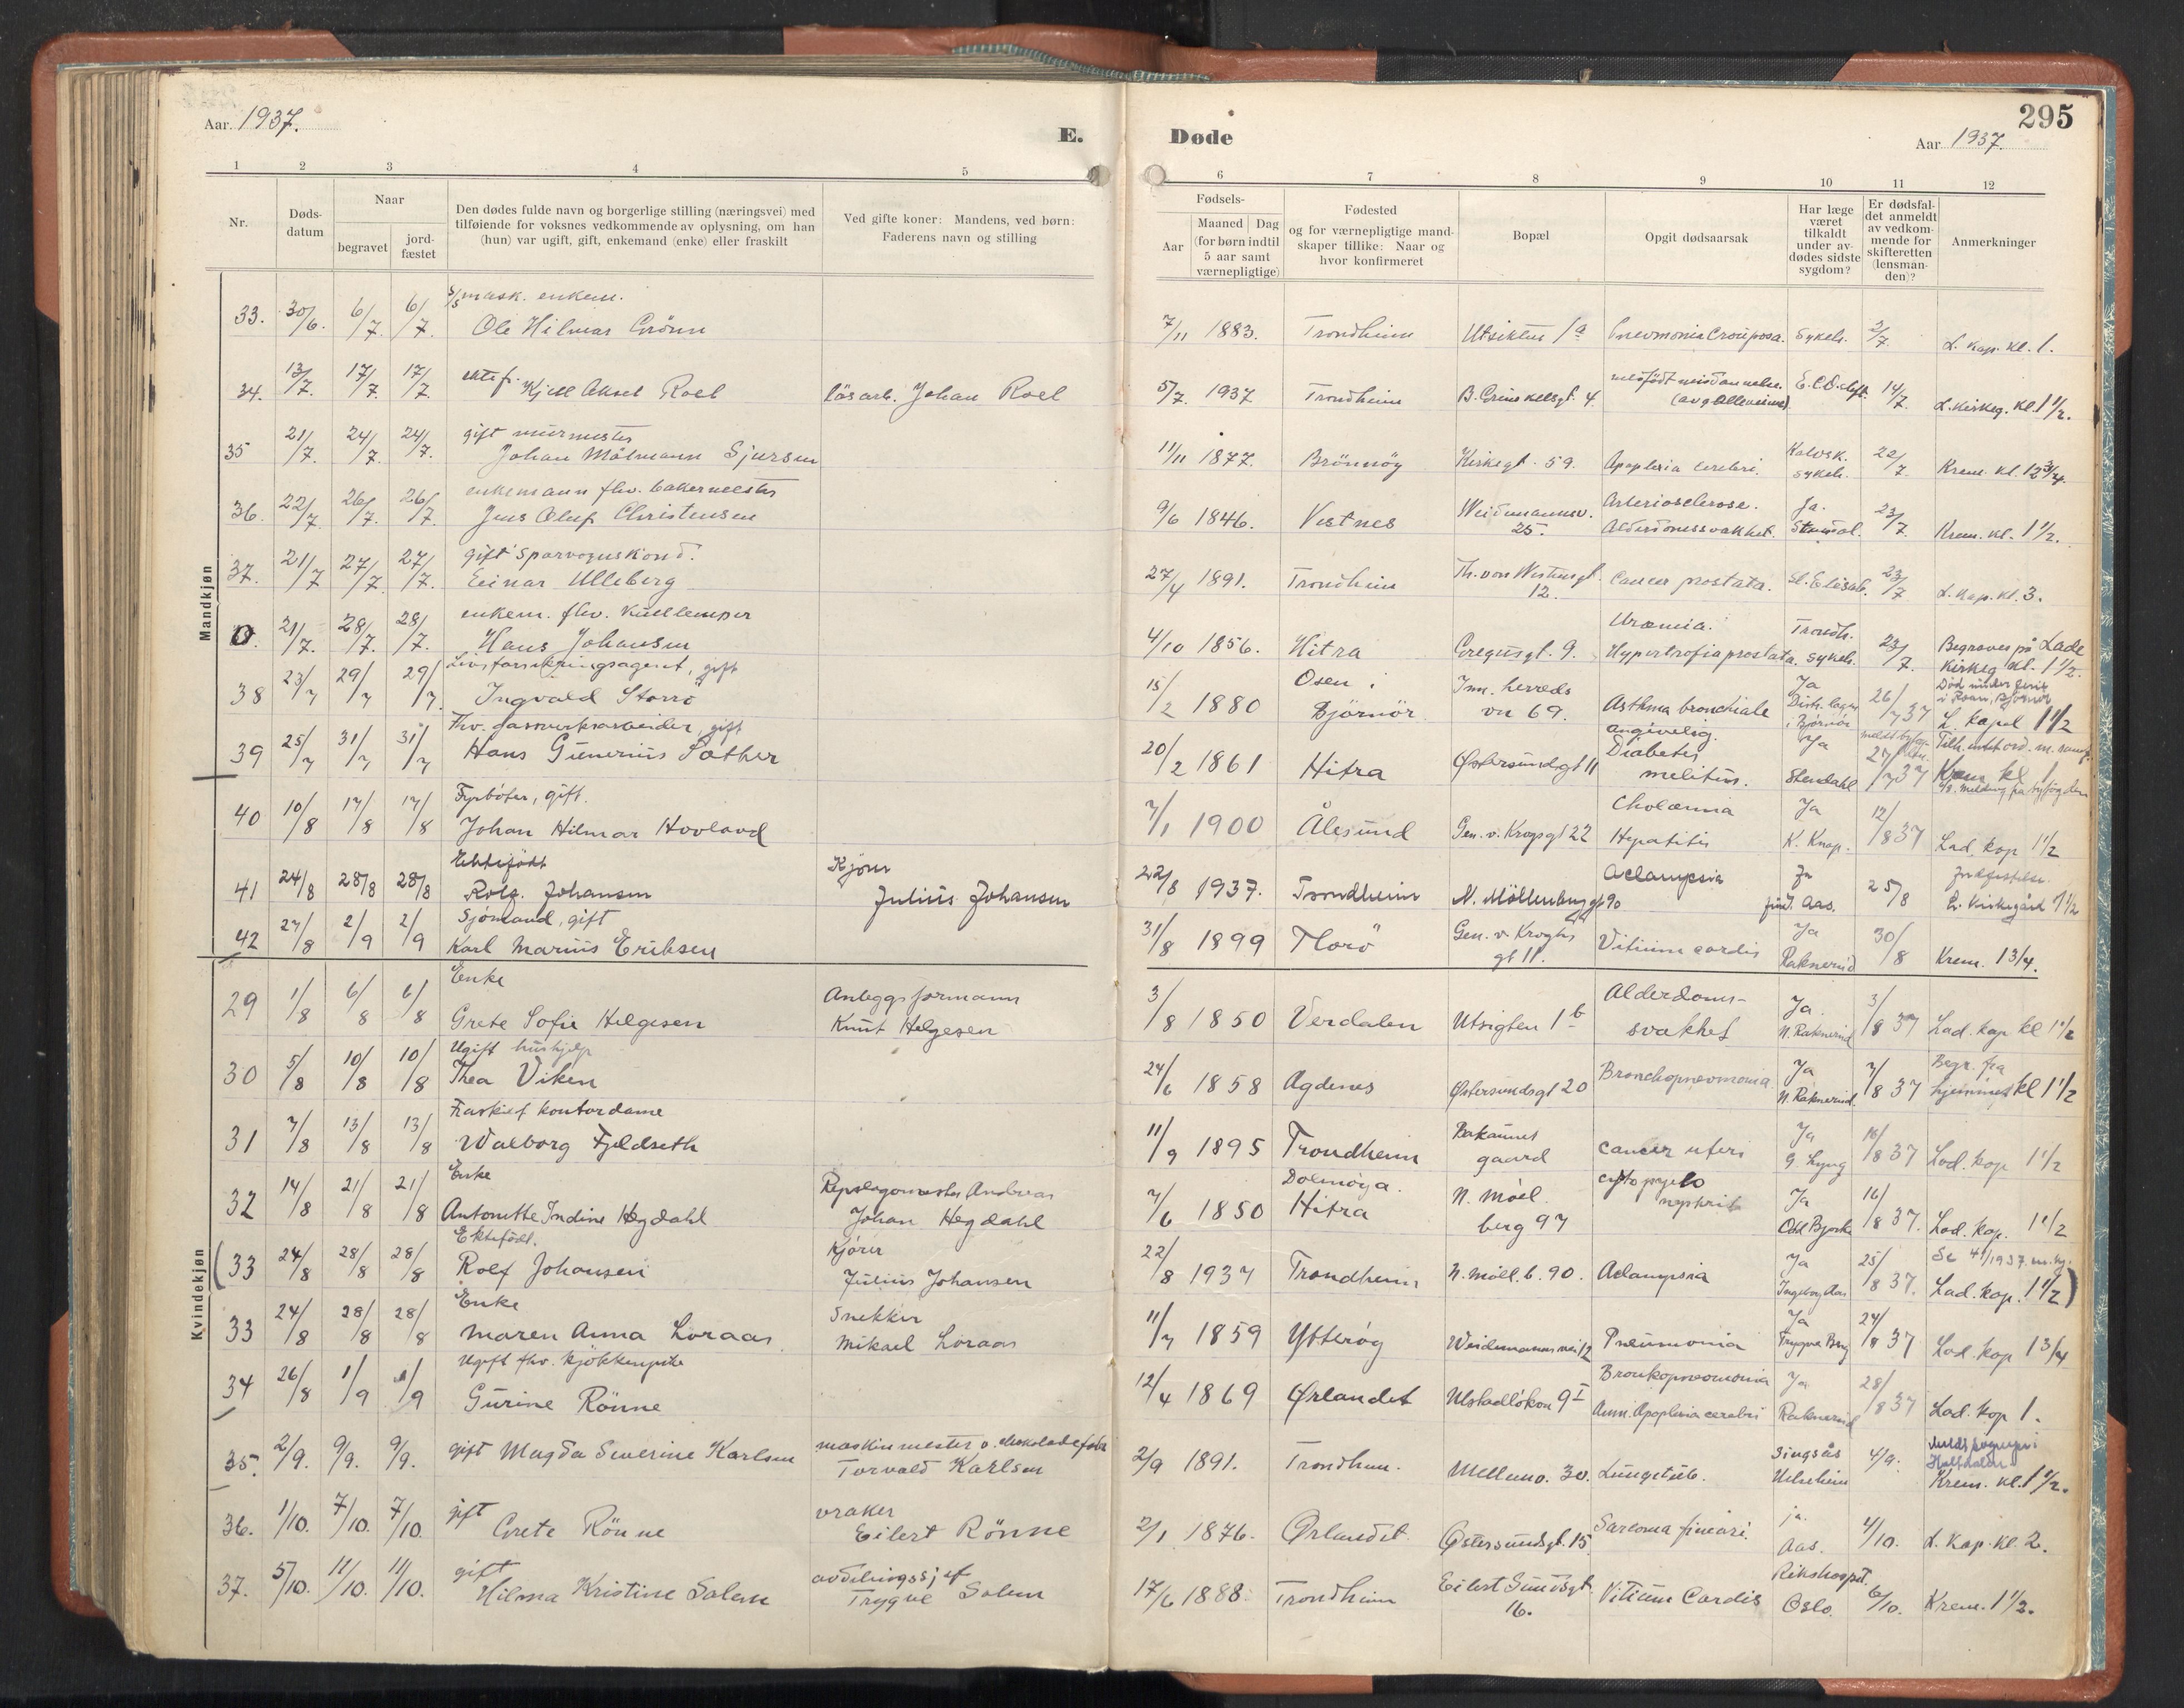 295
Aar 1937.
E.
Døde
Aar 1937.
1 2 3 4 5 6 7 8 9 10 11 12
Nr.
Døds-
datum
Naar
begravet
jord-
fæstet
Den dødes fulde navn og borgerlige stilling (næringsvei) med
tilføiende for voksnes vedkommende av oplysning, om han
(hun) var ugift, gift, enkemand (enke) eller fraskilt
Ved gifte koner: Mandens, ved børn:
Faderens navn og stilling
Fødsels-
Aar
Maaned Dag
(for børn indtil
5 aar samt
værnepligtige)
Fødested
og for værnepligtige mand-
skaper tillike: Naar og
hvor konfirmeret
Bopæl
Opgit dødsaarsak
Har læge
været
tilkaldt
under av-
dødes sidste
sygdom?
Er dødsfal-
det anmeldt
av vedkom-
mende for
skifteretten
(lensman-
den)?
Anmerkninger
Mandkjøn
33. 30/6. 6/7. 6/7. mask. enkem.
Ole Hilmar Grönn
7/11 1883. Trondheim Utsikten 1a Pneumonia Crouposa. Sykeh. 2/7. L. Kap. kl. 1.
34. 13/7. 17/7. 17/7. ektef. Kjell Aksel Roel lösarb. Johan Roel
5/7. 1937 Trondheim B. Grinskellsgt. 4. medfödt misdannelse. 14/7. L. Kirkeg. kl. 1 1/2.
35 21/7. 24/7. 24/7. gift murmester
Johan Målmann Sjursen
11/11 1877. Brönnöy Kirkegt. 59. Apoplexia cerebri. sykeh. 22/7. Krem. kl. 12 3/4.
36. 22/7. 26/7. 26/7. enkemann fhv. bakermester
Jens Oluf Christensen
9/6 1846. Vestnes Weidemannsv.
25. Arteriosclerose.
Alderdomssvakhet. Ja. 23/7. Krem. kl. 1 1/2.
37. 21/7 27/7. 27/7. gift sporvognskond.
Einar Ulleberg
27/4 1891. Trondheim Th. von Westensgt.
12. Cancer prostata. St. Elisab. 23/7 L. Kap. kl. 3.
0. 21/7. 28/7. 28/7. enkem. fhv. kullemper
Hans Johansen
4/10 1856. Hitra Gregusgt. 9. Uræmia.
Hypertrofia prostata. Trondh.
sykeh. 23/7. Begraves på Lade
Kirkeg. kl. 1 1/2.
38 23/7 29/7 29/7. Livsforsikringsagent, gift
Ingvald Storrö
15/2 1880 Osen i
Björnör. Inn. herreds
vn 69. Asthma bronchiale
angivelig. Ja
Distr. læge
i Björnör 26/7 37 Död under ferie
L. kapel 1 1/2
39 25/7 31/7 31/7 Fhv. gassverksarbeider, gift
Hans Gunerius Sæther
20/2 1861 Hitra Østersundsgt 11 Diabetes
melitus. Ja
Stendahl 27/7 37 Krem. kl 1
40 10/8 17/8 17/8 Fyrböter, gift.
Johan Hilmar Hovland
7/1 1900 Ålesund Gen. v. Krogsgt 22 Cholæmia
Hepatitis Ja
K. Knop. 12/8 37 Lad. kap 1 1/2
41 24/8 28/8 28/8 Ektefödt
Rolf Johansen Kjörer
Julius Johansen
22/8 1937. Trondheim N. Möllenbergt 90 Aclampsia Ja
Aas. 25/8 L. Kirkegård 1 1/2
42 27/8 2/9 2/9 Sjömand, gift
Karl Marius Eriksen
31/8 1899 Florö Gen. v. Kroghs
gt 11. Vitium cordis Ja
Raknerud 30/8 Krem. 1 3/4.
Kvindekjøn
29 1/8 6/8 6/8 Enke
Grete Sofie Helgesen Anleggsformann
Knut Helgesen
3/8 1850 Verdalen Utsigten 1b Alderdoms-
svakhet Ja.
N. Raknerud 3/8 37 Lad. kap kl 1 1/2
30 5/8 10/8 10/8 Ugift hushjelp
Thea Viken
24/6 1858 Agdenes Østersundsgt 20 Bronchopneomonia Ja
N. Raknerud. 7/8 37 Begr. fra
hjemmet kl 1 1/2
31 7/8 13/8 13/8 Fraskilt kontordame
Walborg Fjeldseth
11/9 1895 Trondheim Bakaunet
gaard cancer uteri Ja
G. Lyng 10/8 37 Lad. kap 1 1/2
32 14/8 21/8 21/8 Enke
Antonette Indine Hegdahl Repslagermester Andreas
Johan Hegdahl
7/6 1850 Dolmöya.
Hitra N. Möl.
berg 97 cysto pyelo
nephrit Ja
Odd Bjerke 16/8 37. Lad. kap. 1 1/2
(33 24/8 28/8 28/8 Ektefödt.
Rolf Johansen Kjörer
Julius Johansen
22/8 1937 Trondheim N. Möll. b. 90. Aclampsia Ja
Ingeborg Aas 25/8 37. Se 41/1937. m. kj.
Lad. kap. 1 1/2)
33 24/8 28/8 28/8 Enke
Maren Anna Loraas Snekker
Mikael Loraas
11/7 1859 Ytteröy Weidemannsvei 12 Pneumonia Ja
Trygve Berg 24/8 37 Lad. kap 1 3/4
34 26/8 1/9 1/9 Ugift fhv. kjökkenpike
Gurine Rönne
12/4 1869 Ørlandet Ulstadlökon 9 I Bronkopneomonia
Ann. Apoplexia cerebri Ja
Raknerud 28/8 37 Lad. kap 1.
35. 2/9. 9/9. 9/9. gift Magda Severine Karlsen maskinmester v. chokoladefabr
Torvald Karlsen
2/9 1891. Trondheim. Mellemv. 30. Lungetub. Singsås
Helseheim 4/9. Krem. kl. 1 1/2.
36. 1/10. 7/10. 7/10. gift
Grete Rönne vraker
Eilert Rönne
2/1 1876. Örlandet Östersundsgt. 15. Sarcoma ja.
Aas. 4/10. L. Kap. kl. 2.
37. 5/10. 11/10. 11/10. gift
Hilma Kristine Solem avdelingssjef
Trygve Solem
17/6 1888. Trondheim Eilert Sundsgt.
16. Vitium Cordis Rikshospit.
Oslo. 6/10. Krem. 1 1/2.